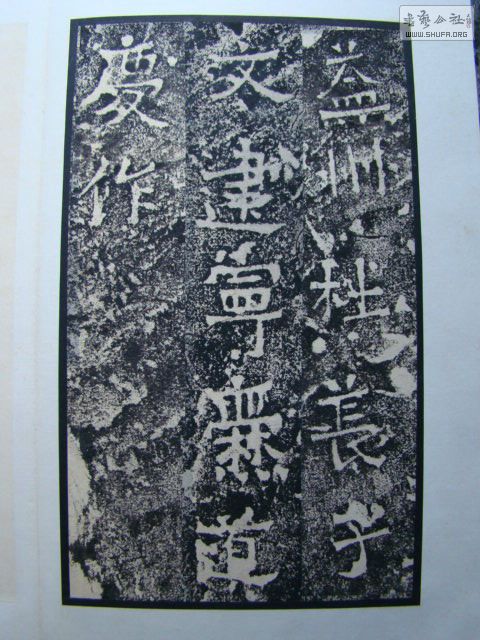 益州杜萇子
文建寧爨道
慶作
書藝公社
WWW.SHUFA.ORG